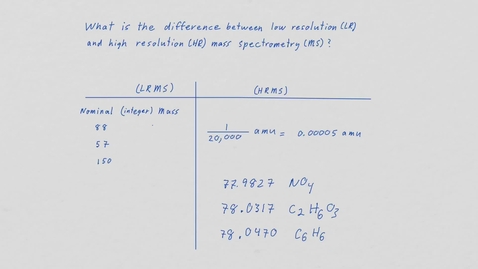 What is the difference between low resolution (LR)
and high resolution (HR) mass spectrometry (MS)?
(LRMS) (HRMS)
Nominal (integer) Mass
88
57
150
1/20,000 amu = 0.00005 amu
77.9827 NO4
78.0317 C2H6O3
78.0470 C6H6